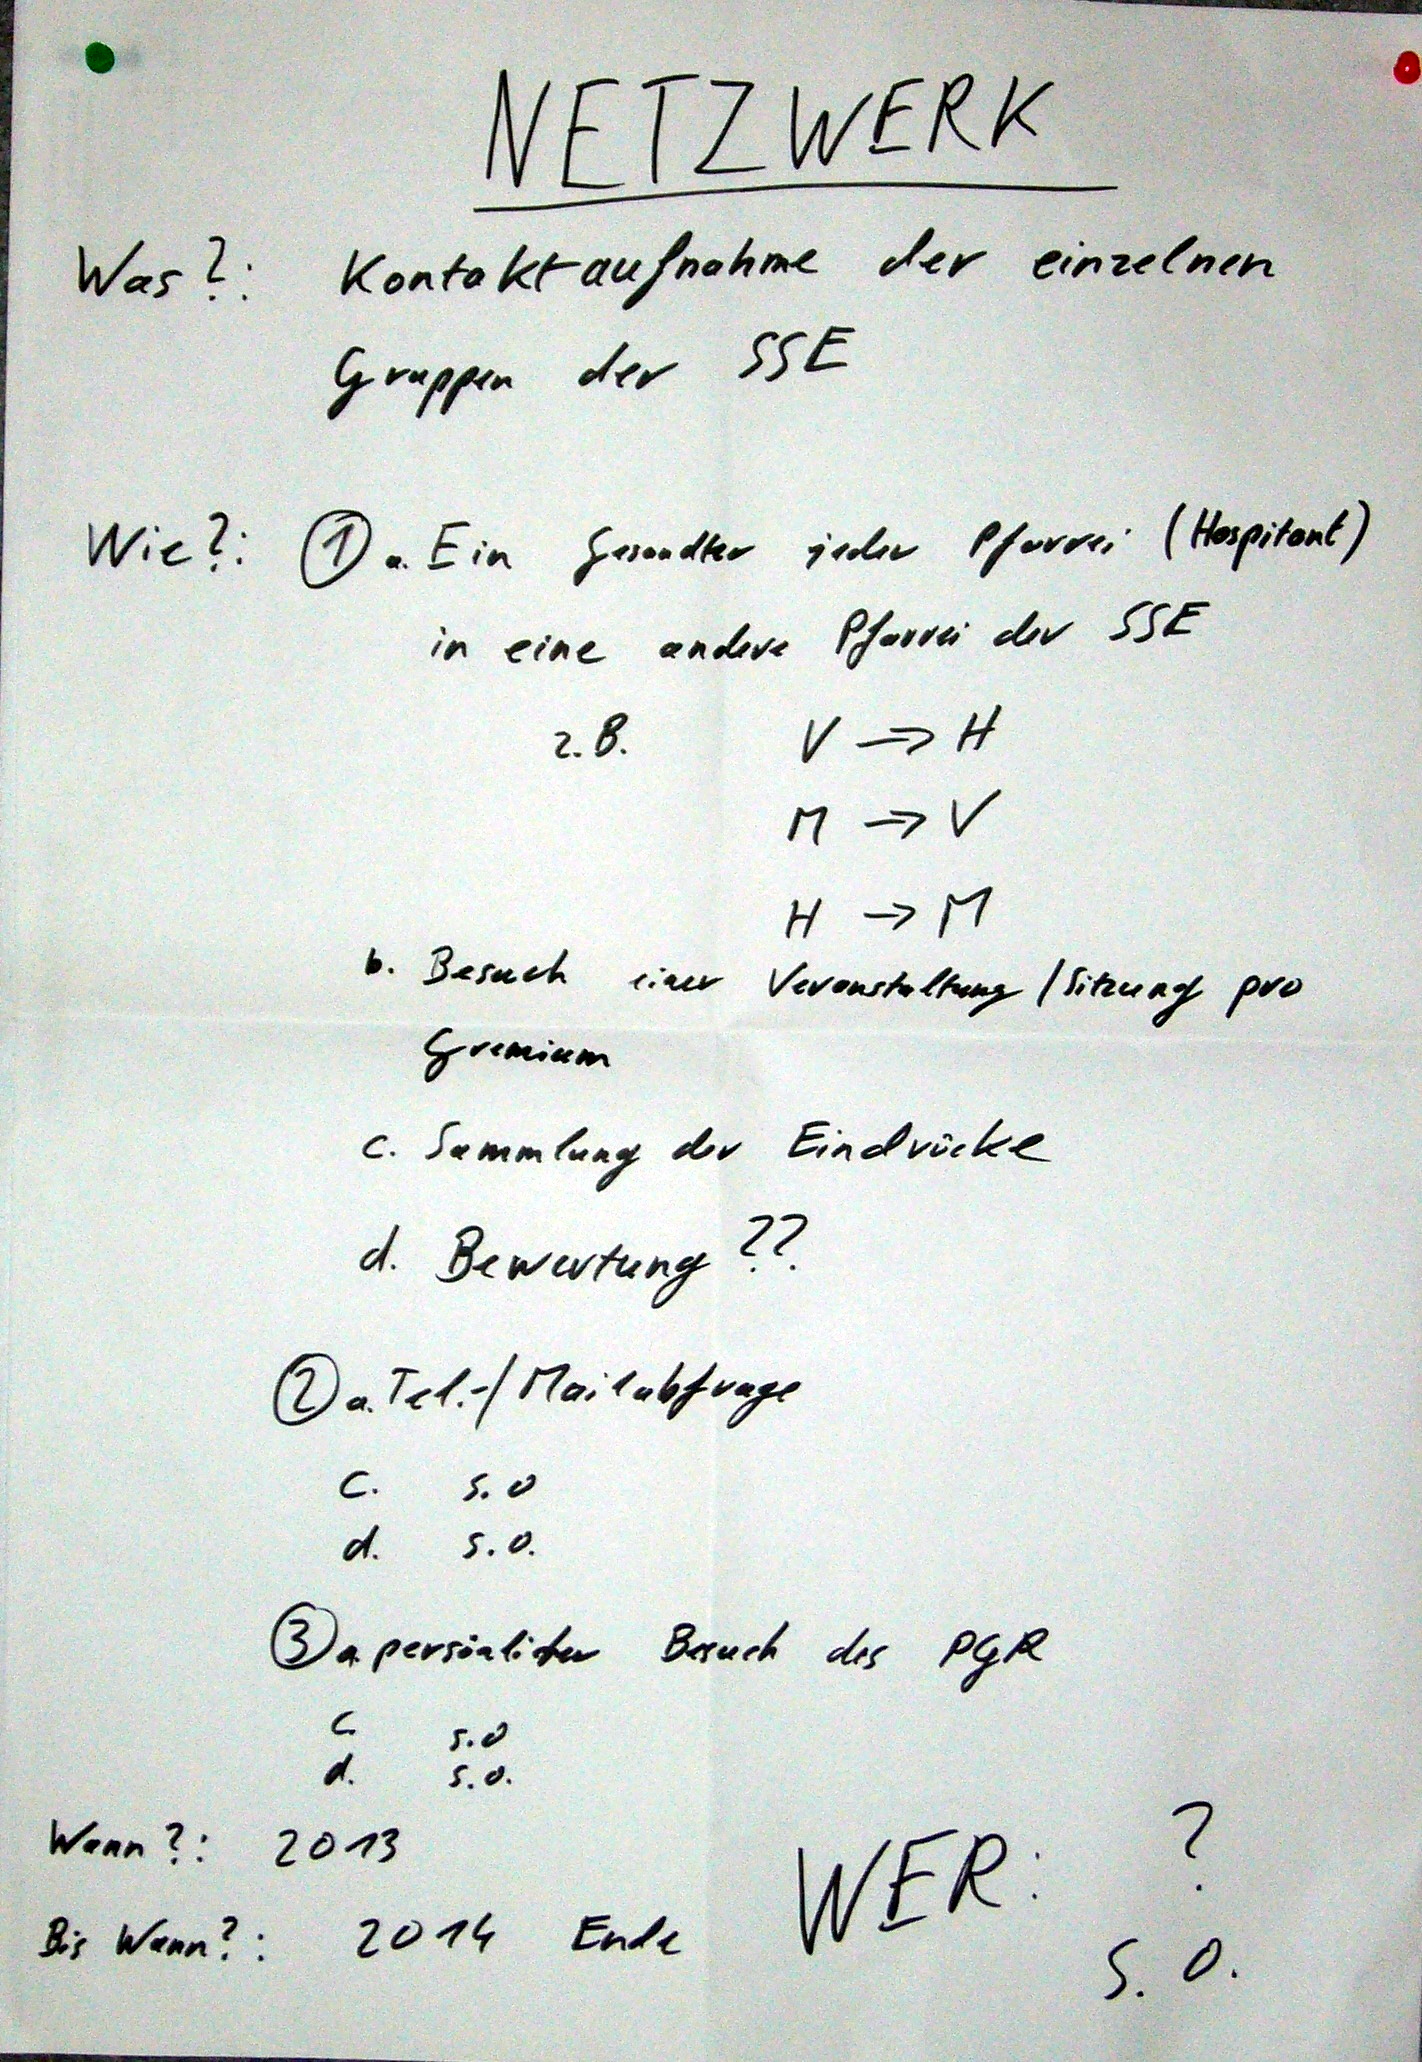 NETZWERK
Was?: Kontaktaufnahme der einzelnen
Gruppen der SSE
Wie?: ① a. Ein Gesandter jeder Pfarrei (Hospitant)
in eine andere Pfarrei der SSE
z.B. V ⇒ H
M ⇒ V
H → M
b. Besuch einer Veranstaltung / Sitzung pro
Gremium
c. Sammlung der Eindrücke
d. Bewertung ??
② a. Tel.-/Mailabfrage
c. s.o
d. s.o.
③ a. persönlicher Besuch des PGR
c s.o
d. s.o.
Wann?: 2013
WER: ?
Bis Wann?: 2014 Ende
s. o.